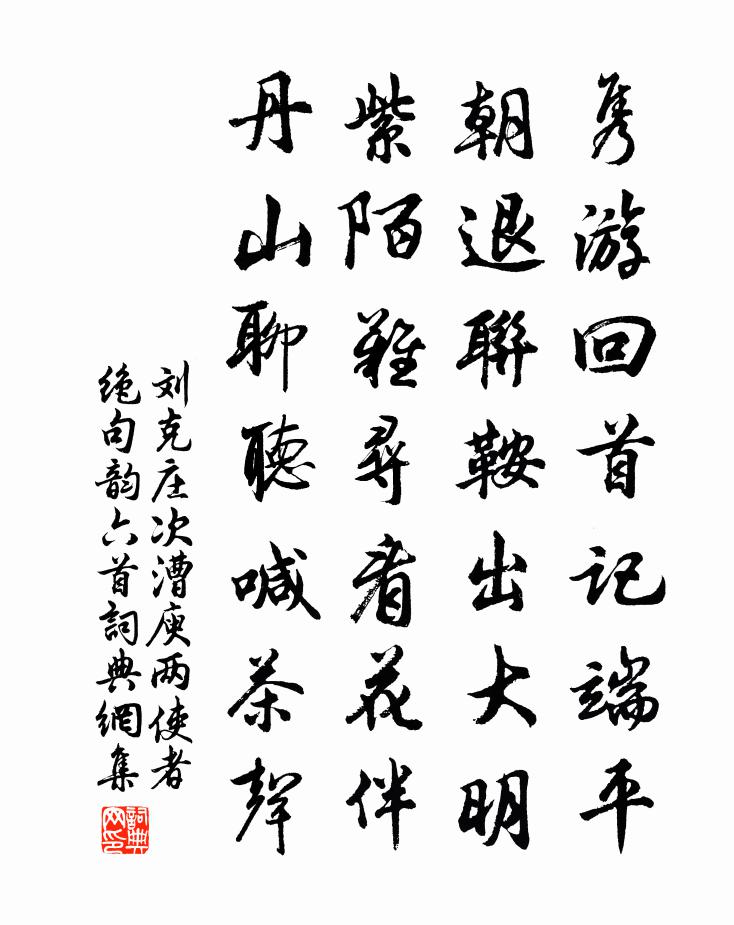 隽游回首记端平
朝退聯鞍出大明
紫陌難尋看花伴
丹山聊聽喊茶聲
刘克庄次漕庾两使者
绝句韵六首詞典網集
詞典
网印